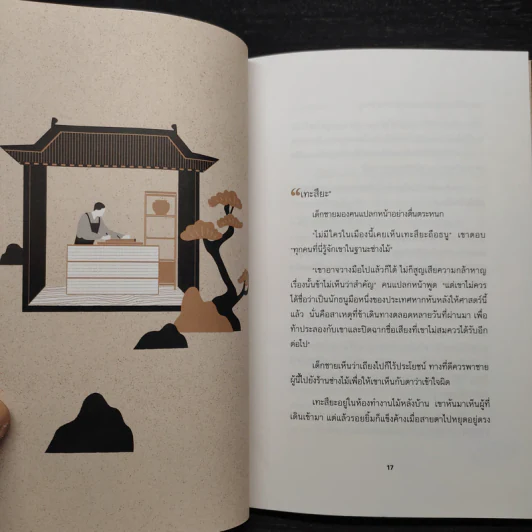 “เทะสึยะ”
เด็กชายมองคนแปลกหน้าอย่างตื่นตระหนก
“ไม่มีใครในเมืองนี้เคยเห็นเทะสึยะถือธนู” เขาตอบ
“ทุกคนที่นี่รู้จักเขาในฐานะช่างไม้”
“เขาอาจวางมือไปแล้วก็ได้ ไม่ก็สูญเสียความกล้าหาญ
เรื่องนั้นข้าไม่เห็นว่าสำคัญ” คนแปลกหน้าพูด “แต่เขาไม่ควร
ได้ชื่อว่าเป็นนักธนูมือหนึ่งของประเทศหากหันหลังให้ศาสตร์นี้
แล้ว นั่นคือสาเหตุที่ข้าเดินทางตลอดหลายวันที่ผ่านมา เพื่อ
ท้าประลองกับเขาและปิดฉากชื่อเสียงที่เขาไม่สมควรได้รับอีก
ต่อไป”
เด็กชายเห็นว่าเถียงไปก็ไร้ประโยชน์ ทางที่ดีควรพาชาย
ผู้นี้ไปยังร้านช่างไม้เพื่อให้เขาเห็นกับตาว่าเข้าใจผิด
เทะสึยะอยู่ในห้องทำงานไม้หลังบ้าน เขาหันมาเห็นผู้ที่
เดินเข้ามา แต่แล้วรอยยิ้มก็แข็งค้างเมื่อสายตาไปหยุดอยู่ตรง
17